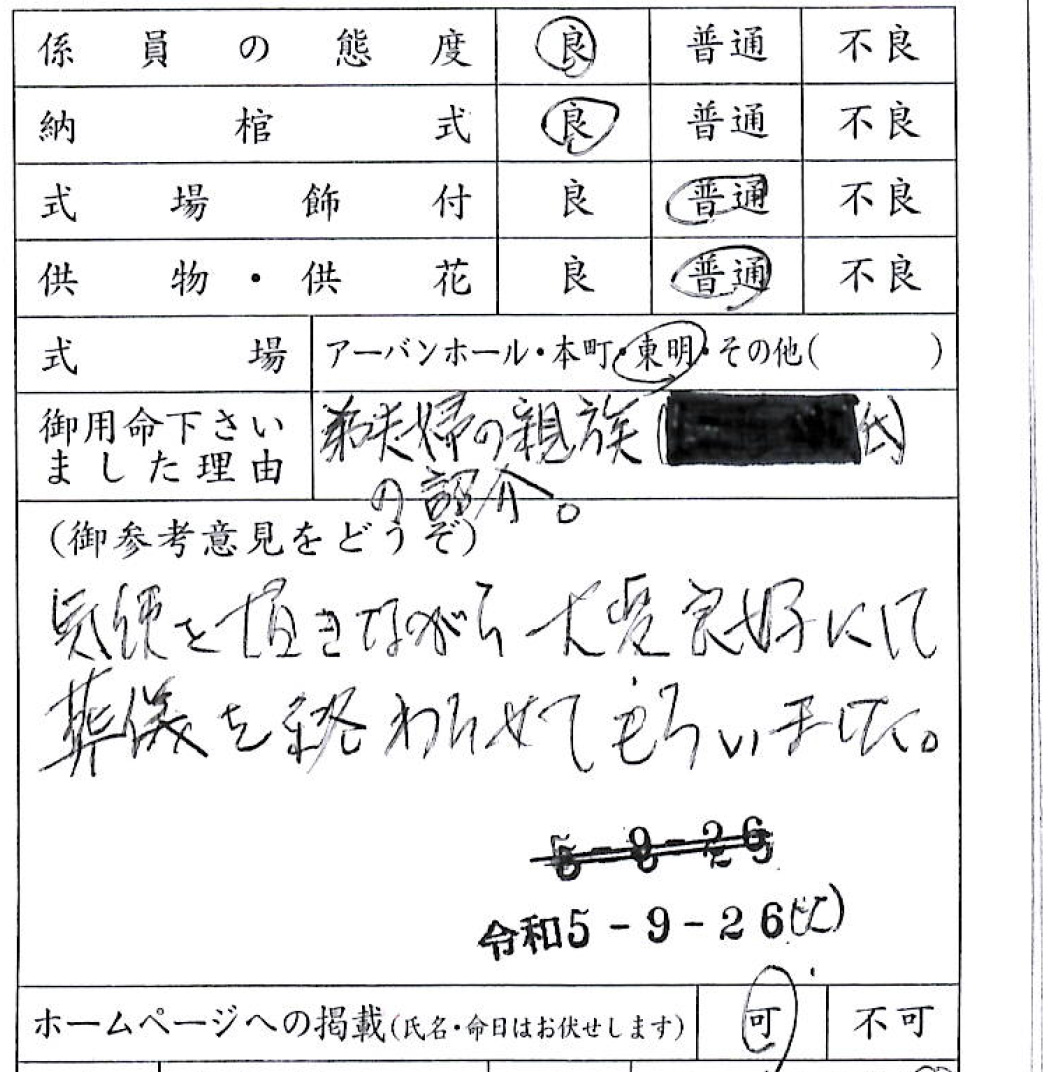 係員の態度 良 普通 不良
納棺式 良 普通 不良
式場飾付 良 普通 不良
供物・供花 良 普通 不良
式場 アーバンホール・本町・東明・その他( )
御用命下さい
ました理由
弟夫婦の親族(氏)
の紹介。
(御参考意見をどうぞ)
気使を頂きながら大変良好にて
葬儀を終わらせてもらいました。
5-9-26
令和5-9-26(火)
ホームページへの掲載(氏名・命日はお伏せします) 可 不可